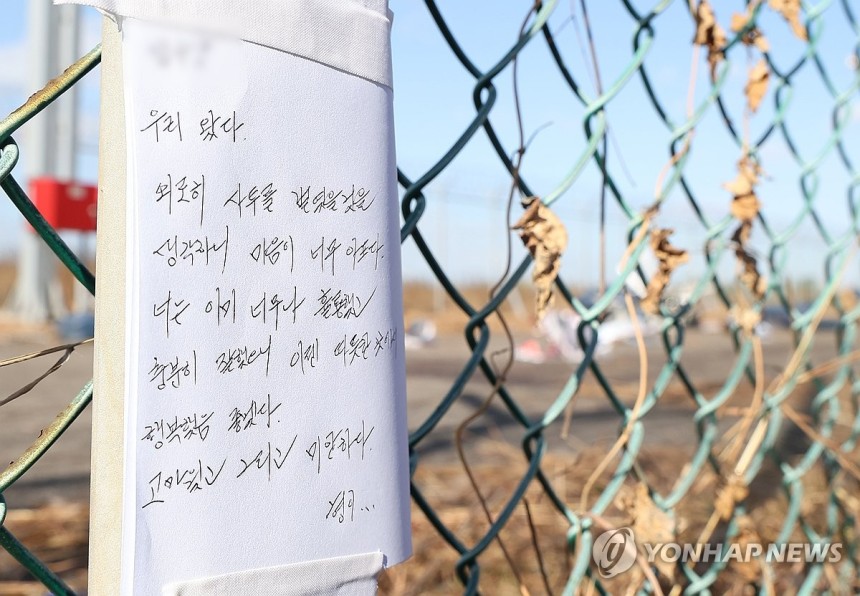 우리 왔다.
외로히 사투를 벌였을 것을
생각하니 마음이 너무 아프다.
너는 이미 너무나 훌륭했고
충분히 잘했으니 이젠 따뜻한 곳에서
행복했음 좋겠다.
고마웠고 그리고 미안하다.
형이...
YONHAP NEWS